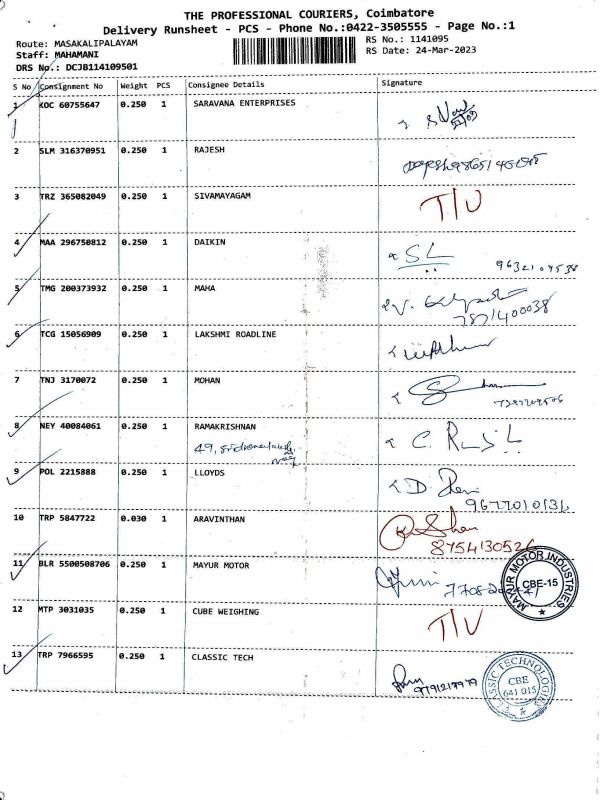 THE PROFESSIONAL COURIERS, Coimbatore
Delivery Runsheet - PCS - Phone No.:0422-3505555 - Page No.:1
Route: MASAKALIPALAYAM
RS No.: 1141095
Staff: MAHAMANI
RS Date: 24-Mar-2023
DRS No.: DCJB114109501
S No Consignment No Weight PCS Consignee Details Signature
1 KOC 60755647 0.250 1 SARAVANA ENTERPRISES
2 SLM 316370951 0.250 1 RAJESH
3 TRZ 365082049 0.250 1 SIVAMAYAGAM T/U
4 MAA 296750812 0.250 1 DAIKIN SL
5 TMG 200373932 0.250 1 MAHA
6 TCG 15056909 0.250 1 LAKSHMI ROADLINE
7 TNJ 3170072 0.250 1 MOHAN
8 NEY 40084061 0.250 1 RAMAKRISHNAN
49,
9 POL 2215888 0.250 1 LLOYDS
10 TRP 5847722 0.030 1 ARAVINTHAN
8754130526
11 BLR 5500508706 0.250 1 MAYUR MOTOR
MAYUR MOTOR INDUSTRIES
CBE-15
12 MTP 3031035 0.250 1 CUBE WEIGHING T/U
13 TRP 7966595 0.250 1 CLASSIC TECH
CLASSIC TECHNOLOGIES
CBE
641 015